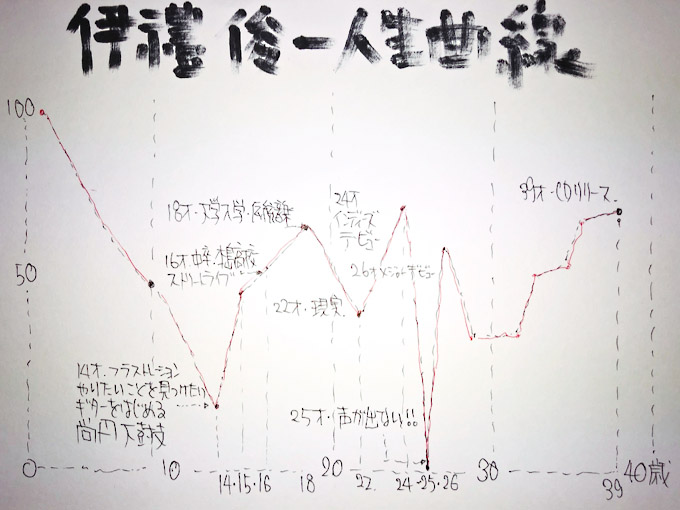 伊禮俊一人生曲線
100
50
0
18才・大学入学・
16才
ストリートライブ
24才
インディーズ
デビュー
39才・CDリリース.
26才メジャーデビュー
22才・現実.
14才・フラストレーション
やりたいことを見つけたい
ギターをはじめる
尚円太鼓
25才・声が出ない!!
10
14・15・16
18
20
22.
24・25・26
30
39
40歳